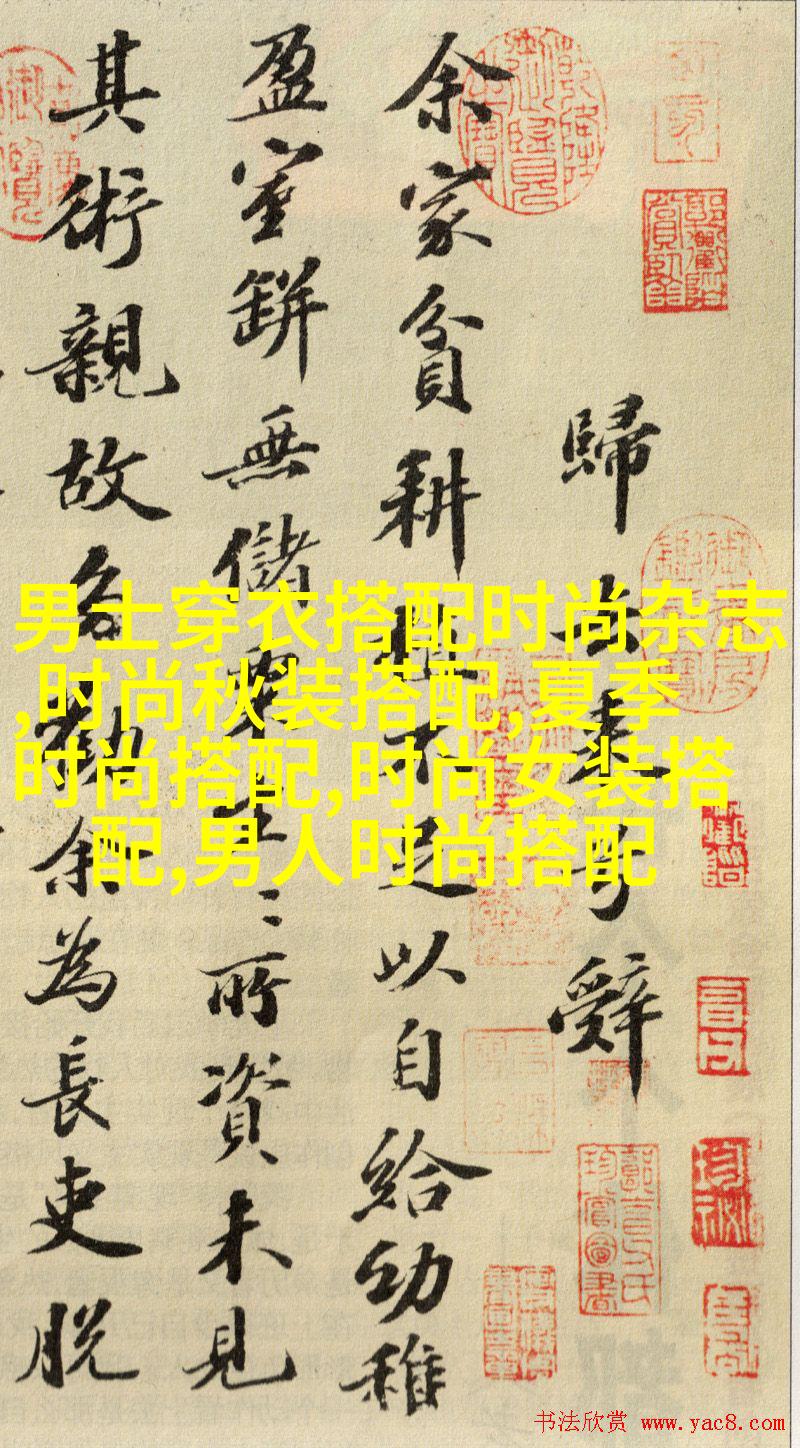 歸去来兮辭
余家貧耕植不足以自給幼稚
盈室缾無儲粟生〻所資未見
其術親故多勸余為長吏脫
男士穿衣搭配时尚杂志
,时尚秋装搭配,夏季
时尚搭配,时尚女装搭
配,男人时尚搭配
书法欣赏 www.yac8.com